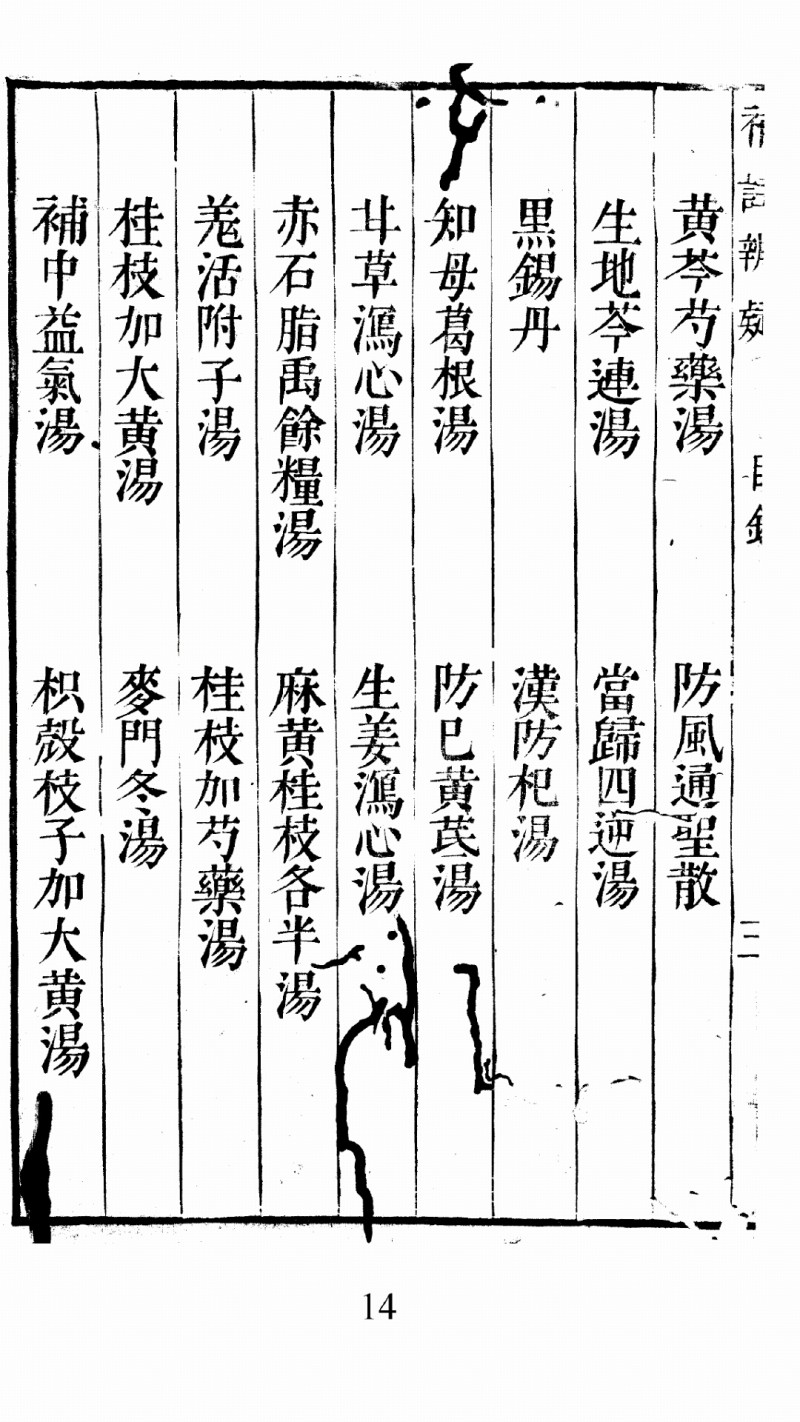 補註辨疑 目錄 二
黃芩芍藥湯 防風通聖散
生地芩連湯 當歸四逆湯
黑錫丹 漢防杞湯
知母葛根湯 防巳黃芪湯
甘草瀉心湯 生姜瀉心湯
赤石脂禹餘糧湯 麻黃桂枝各半湯
羗活附子湯 桂枝加芍藥湯
桂枝加大黃湯 麥門冬湯
補中益氣湯 枳殼枝子加大黃湯
14